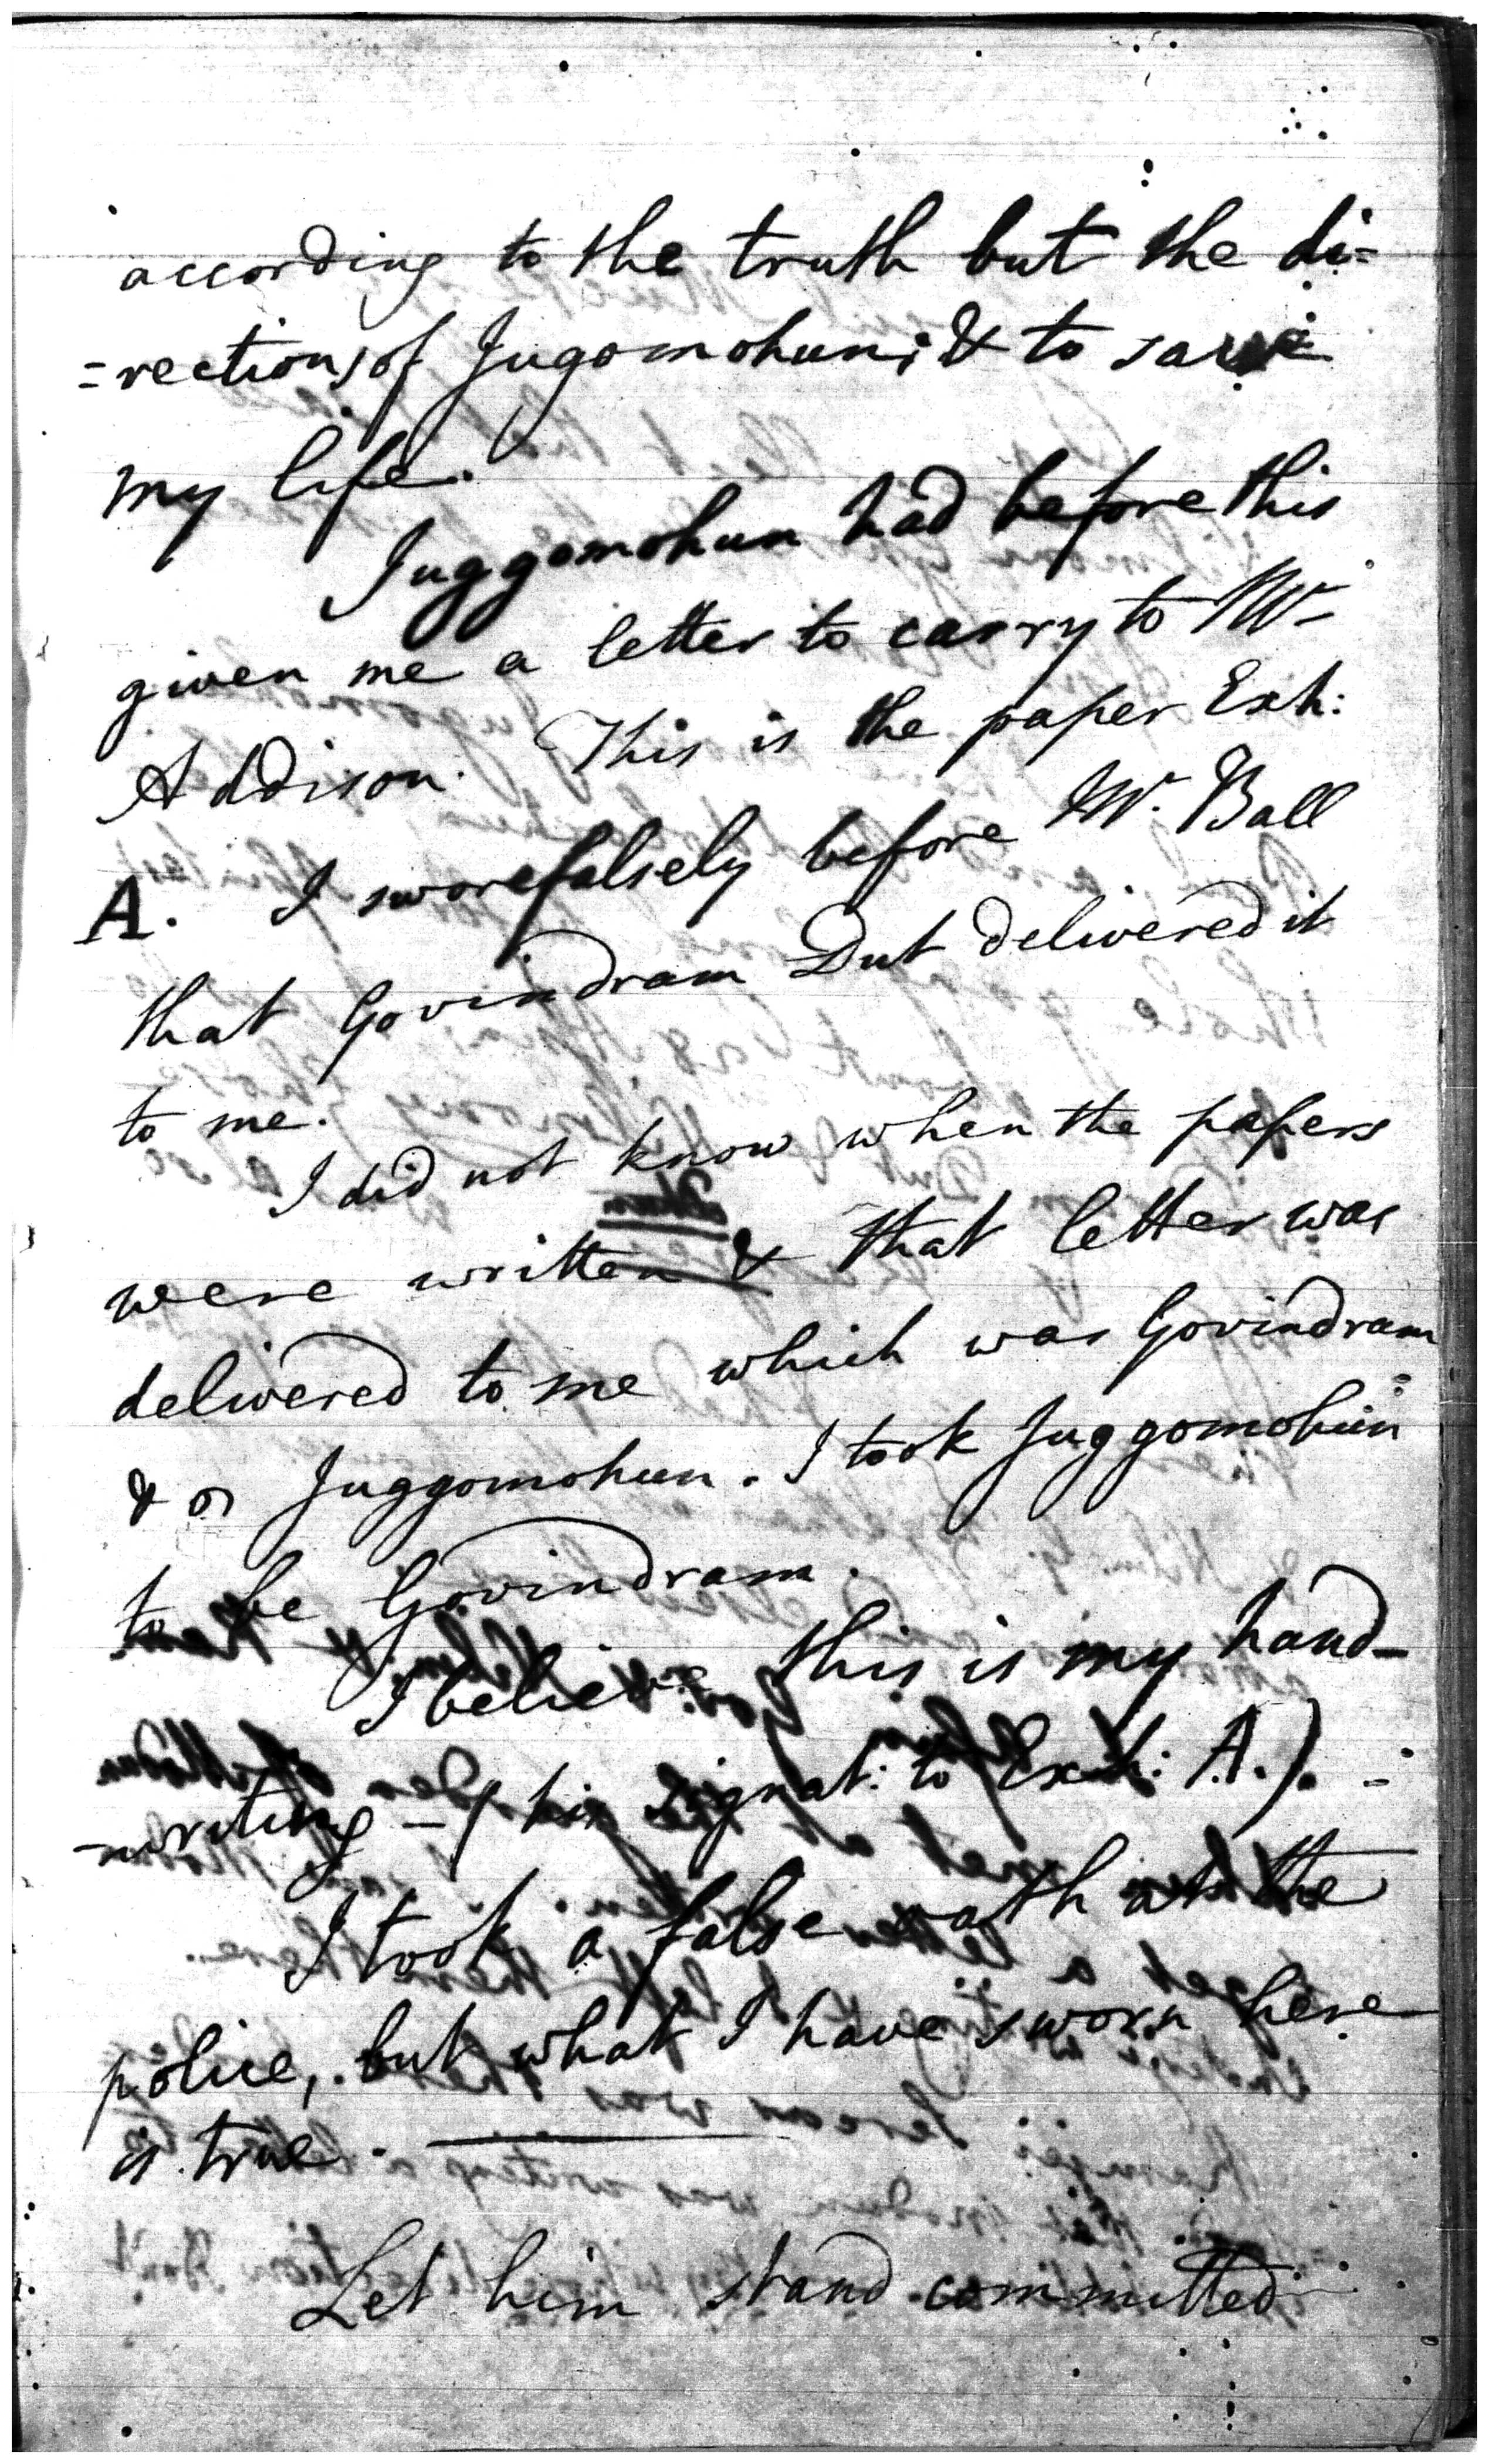 according to the truth but the di=
=rections of Jugomohun; & to save
my life.
Juggomohun had before this
given me a letter to carry to Mr
Addison. This is the paper Exh:
A. I swore falsely before Mr. Ball
that Govindram Dut delivered it
to me.
I did not know when the papers
were written & that letter was
delivered to me which was Govindram
& or Juggomohun. I took Juggomohun
to be Govindram.
I believe this is my hand-
-writing - (his signat: to Exh: A.). -
I took a false oath at the
police, but what I have sworn here
is true.
Let him stand committed